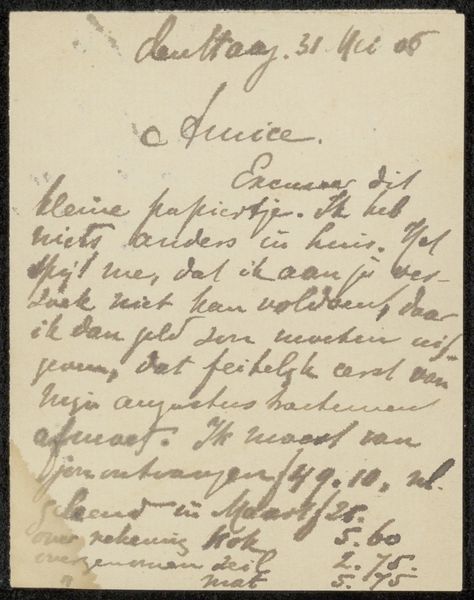 den Haag. 31 Mei 06
Amice.
Excuseer dit
kleine papiertje. Ik heb
niets anders in huis. Het
spijt me, dat ik aan je ver-
zoek niet kan voldoen, daar
ik dan geld zou moeten uit-
geven, dat feitelijk eerst van
mijn augustus tractement
afmoet. Ik moest van
jou ontvangen f 49.10, nl.
geleend in Maart f 25.
over rekening Kok 5.60
overgenomen zeil 2.75.
" mat 5.75